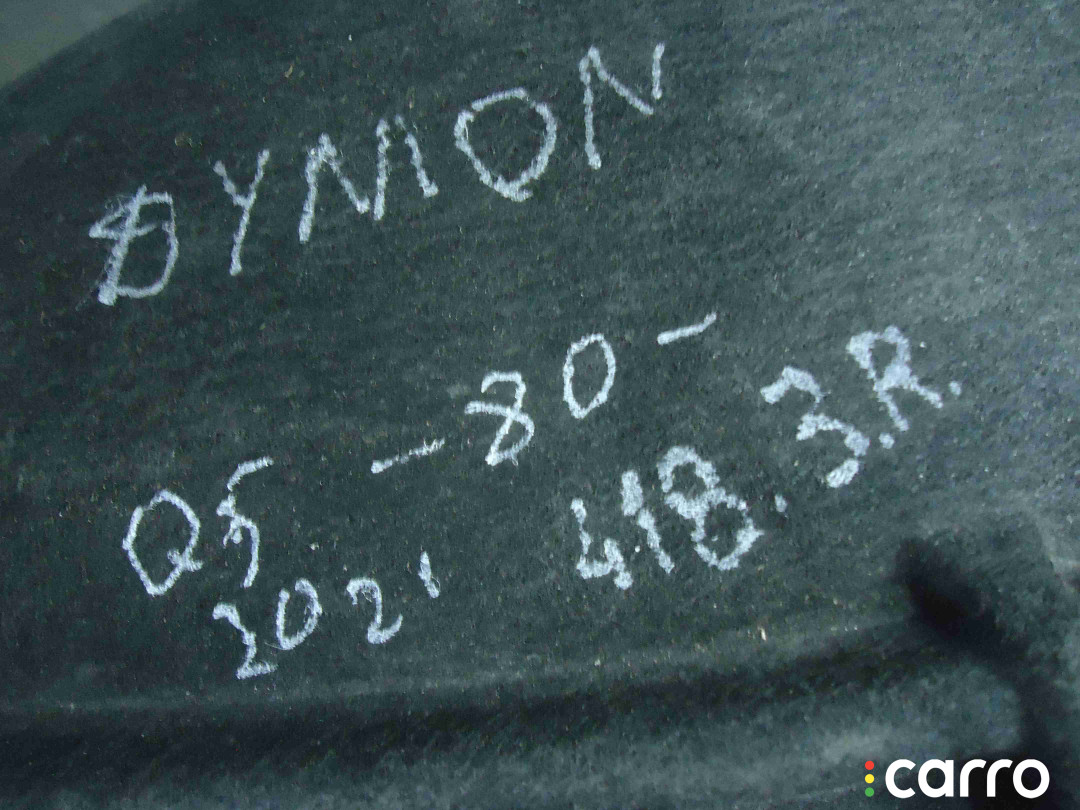 DYMON
Q5 - 80 -
2021 418.3.R.
carro